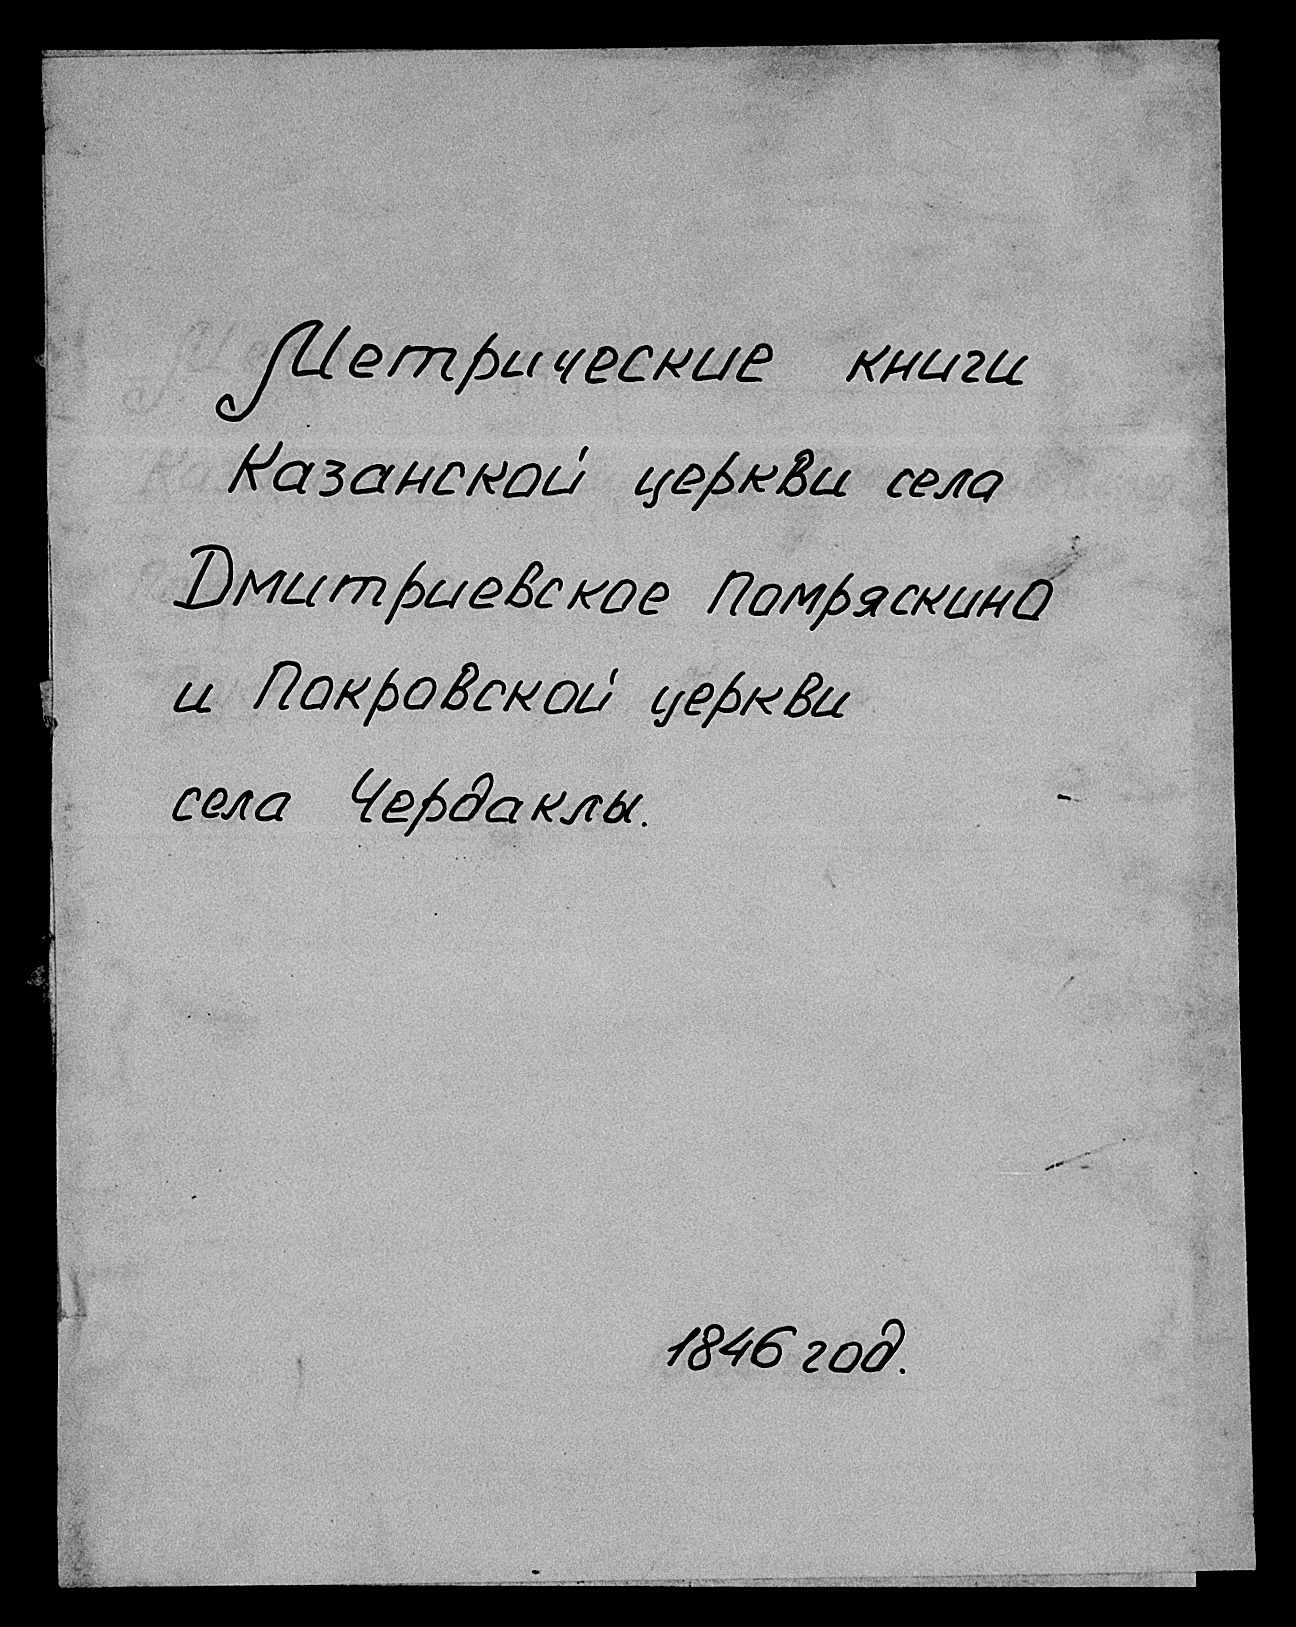 Метрические книги
Казанской церкви села
Дмитриевское Помряскино
и Покровской церкви
села Чердаклы.
1846 год.